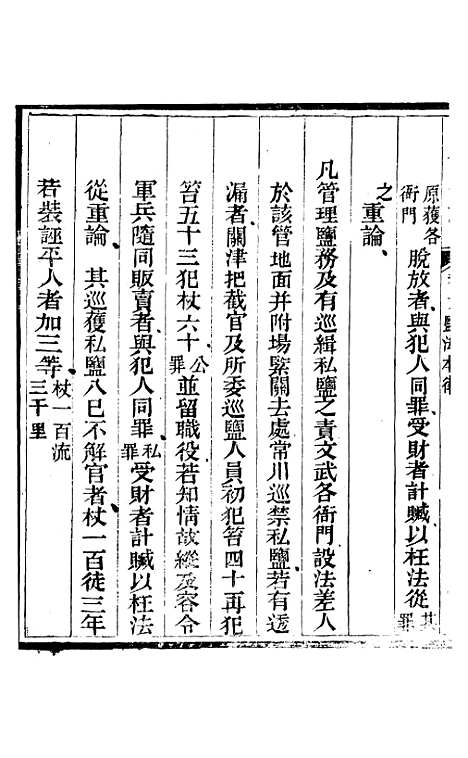 原獲各衙門脫放者與犯人同罪受財者計贓以枉法從其罪
之重論
凡管理鹽務及有巡緝私鹽之責文武各衙門設法差人
於該管地面并附場緊關去處常川巡禁私鹽若有透
漏者關津把截官及所委巡鹽人員初犯笞四十再犯
笞五十三犯杖六十公罪並留職役若知情故縱及容令
軍兵隨同販賣者與犯人同罪私罪受財者計贓以枉法
從重論其巡獲私鹽入巳不解官者杖一百徒三年
若裝誣平人者加三等杖一百流三千里